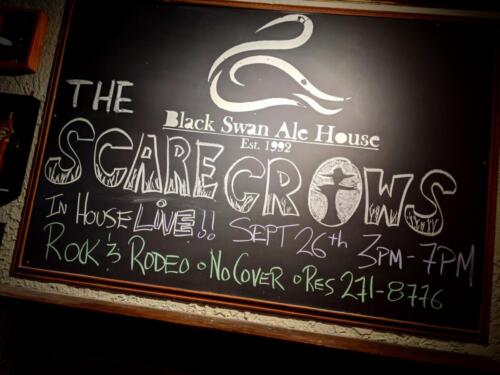 THE
Black Swan Ale House
Est. 1992
SCARECROWS
IN HOUSE LIVE!! SEPT 26th 3PM-7PM
ROCK & RODEO • NO COVER • RES 271-8776